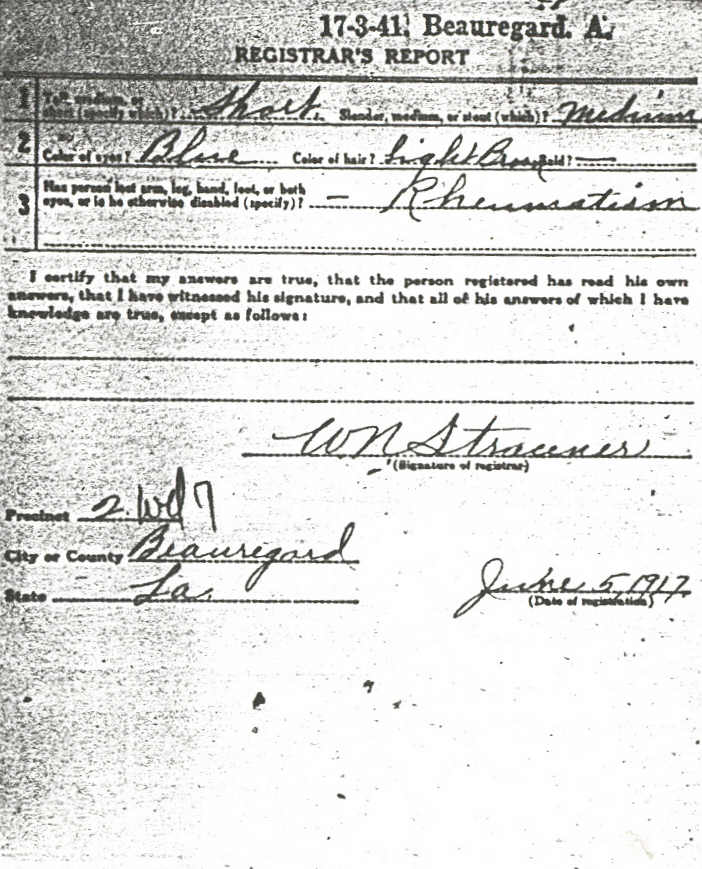 17-3-41. Beauregard. A.
REGISTRAR'S REPORT
1 Tall, medium, or short (specify which)? Short. Slender, medium, or stout (which)? Medium
2 Color of eyes? Blue Color of hair? Light Brown Bald? —
3 Has person lost arm, leg, hand, foot, or both
eyes, or is he otherwise disabled (specify)? — Rheumatism
I certify that my answers are true, that the person registered has read his own
answers, that I have witnessed his signature, and that all of his answers of which I have
knowledge are true, except as follows:
WN
(Signature of registrar)
Precinct 2. Wd 7
City or County Beauregard
State La.
June 5, 1917
(Date of registration)